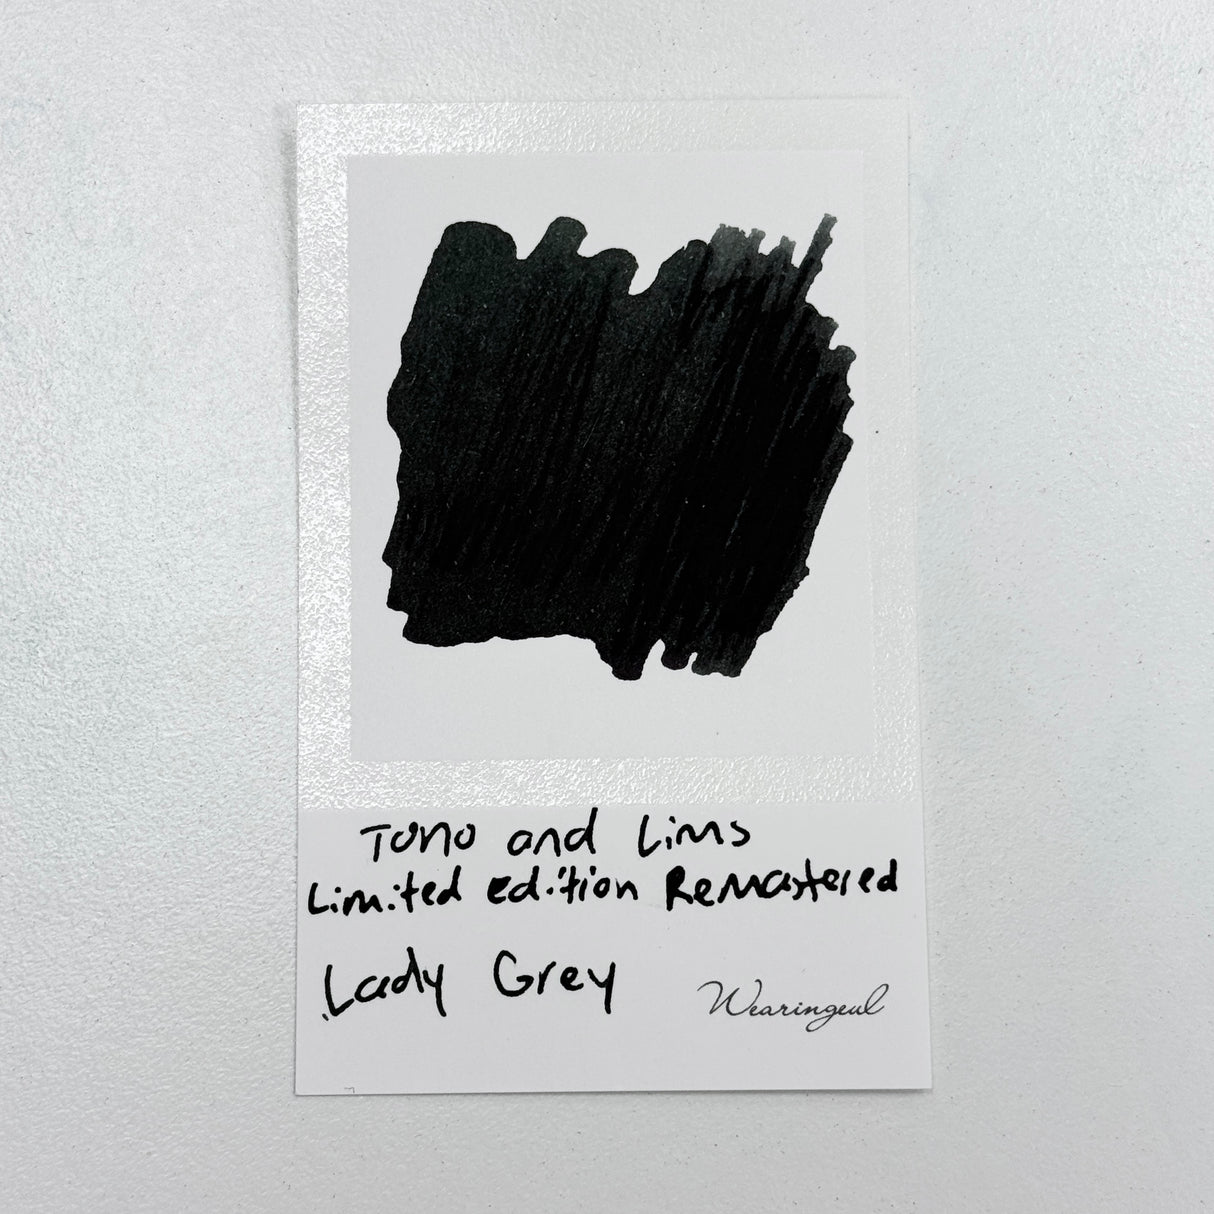 Tono and Lims
Limited edition Remastered
Lady Grey
Wearingeul